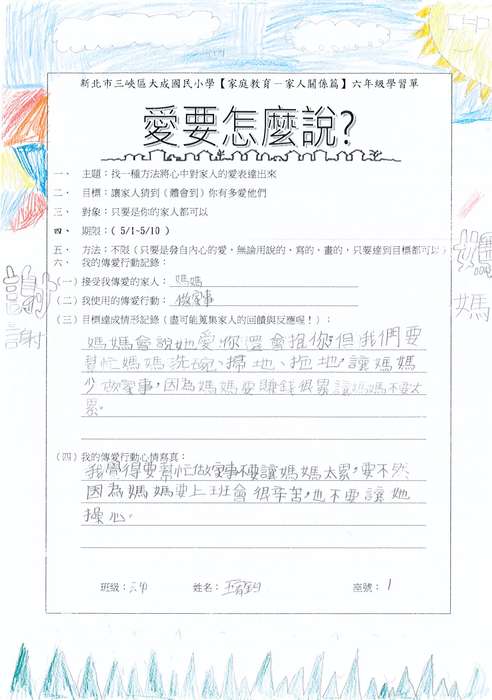 新北市三峽區大成國民小學【家庭教育－家人關係篇】六年級學習單
愛要怎麼說?
一、 主題：找一種方法將心中對家人的愛表達出來
二、 目標：讓家人猜到（體會到）你有多愛他們
三、 對象：只要是你的家人都可以
四、 期限：( 5/1-5/10 )
五、 方法：不限（只要是發自內心的愛，無論用說的、寫的、畫的，只要達到目標都可以）
六、 我的傳愛行動記錄：
（一）接受我傳愛的家人： 媽媽
（二）我使用的傳愛行動： 做家事
（三）目標達成情形記錄（盡可能蒐集家人的回饋與反應喔！）：
媽媽會說她愛你還會抱你，但我們要
幫忙媽媽洗碗、掃地、拖地，讓媽媽
少做家事，因為媽媽要賺錢很累讓媽媽不要太
累。
（四）我的傳愛行動心情寫真：
我覺得要幫忙做家事不要讓媽媽太累，要不然
因為媽媽要上班會很辛苦，也不要讓她
操心。
班級： 姓名： 座號： 1
謝謝
媽媽